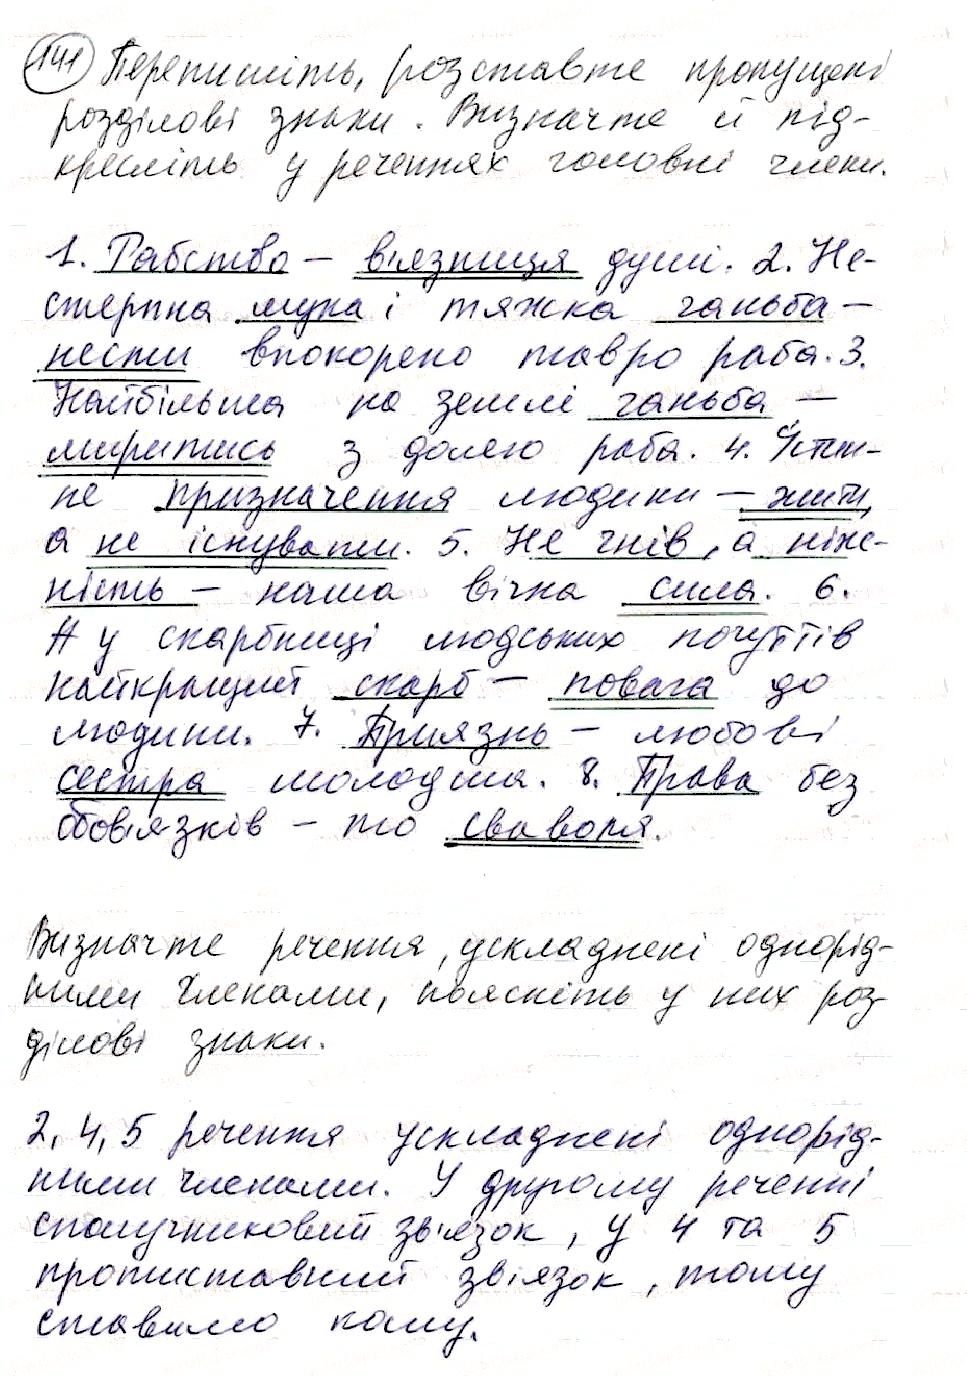 141 Перепишіть, розставте пропущені
розділові знаки. Визначте й під-
кресліть у реченнях головні члени.
1. Рабство – в'язниця душі. 2. Не-
стерпна мука і тяжка ганьба –
нести впокорено тавро раба. 3.
Найбільша на землі ганьба –
миритись з долею раба. 4. Істин-
не призначення людини – жити,
а не існувати. 5. Не гнів, а ніж-
ність – наша вічна сила. 6.
А у скарбниці людських почуттів
найкращий скарб – повага до
людини. 7. Приязнь – любові
сестра молодша. 8. Права без
обов'язків – то сваволя.
Визначте речення, ускладнені однорід-
ними членами, поясніть у них роз-
ділові знаки.
2, 4, 5 речення ускладнені однорід-
ними членами. У другому реченні
сполучниковий зв'язок, у 4 та 5
протиставний зв'язок, тому
ставимо кому.